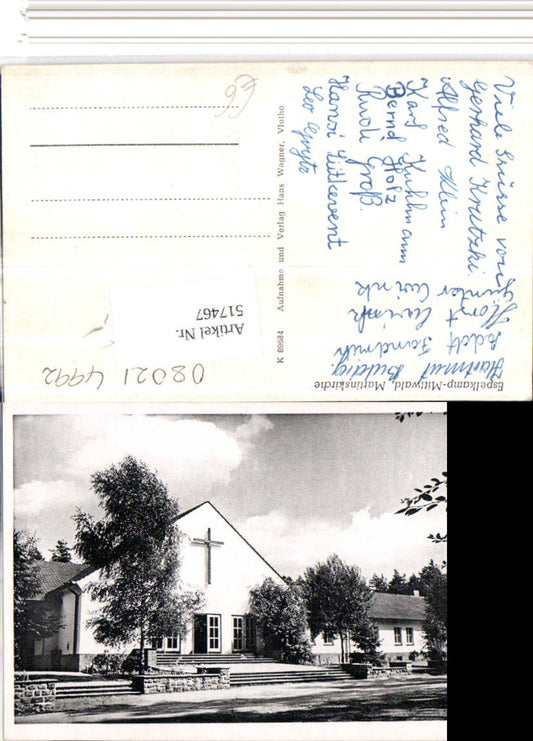 Viele Grüsse von
Gerhard Kretzki
Alfred Klein
Karl Kuhlmann
Bernd Holz
Rudi Groß.
Hansi Lütkevent
Leo
Günter Wink
Horst Wink
Hartmut
Espelkamp-Mittwald, Martinskirche
K 89684 Aufnahme und Verlag Hans Wagner, Vlotho
Artikel Nr.
517467
08021 4992